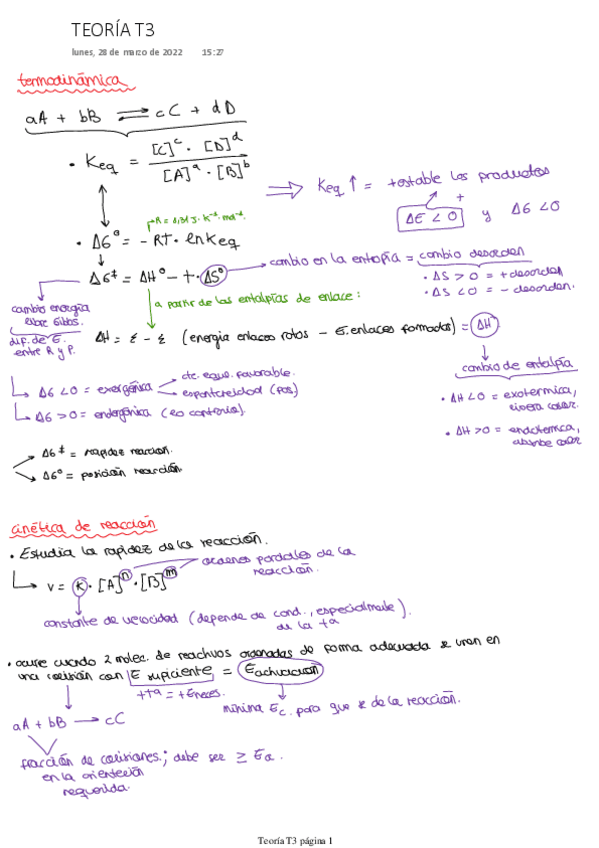 TEORÍA T3
lunes, 28 de marzo de 2022 15:27
termodinámica
aA + bB ⇌ cC + dD
• Keq = [C]^c · [D]^d / [A]^a · [B]^b
Keq ↑ = +estable los productos
+
ΔE < 0 y ΔG < 0
R = 8,31 J · K⁻¹ · mol⁻¹
• ΔG° = - RT · ln Keq
ΔG‡ = ΔH° - T · ΔS°
cambio en la entropía = cambio desorden
• ΔS > 0 = + desorden
• ΔS < 0 = - desorden.
cambio energía
libre Gibbs.
dif. de E.
entre R y P.
a partir de las entalpías de enlace:
ΔH = Σ - Σ (energía enlaces rotos - E. enlaces formados) = ΔH°
cambio de entalpía
• ΔH < 0 = exotérmica,
libera calor.
• ΔH > 0 = endotérmica,
absorbe calor
ΔG < 0 = exergónica
cte. equi. favorable.
espontaneidad (pos)
ΔG > 0 = endergónica (lo contrario).
ΔG‡ = rapidez reacción.
ΔG° = posición reacción
cinética de reacción
• Estudia la rapidez de la reacción.
v = k · [A]^n · [B]^m
ordenes parciales de la
reacción.
constante de velocidad (depende de cond., especialmente
de la tª).
• ocurre cuando 2 molec. de reactivos ordenadas de forma adecuada se unen en
una colisión con E suficiente = Eactivación
+tª = +Eneces.
mínima Ec. para que se de la reacción.
aA + bB → cC
fracción de colisiones; debe ser ≥ Ea.
en la orientación
requerida.
Teoría T3 página 1